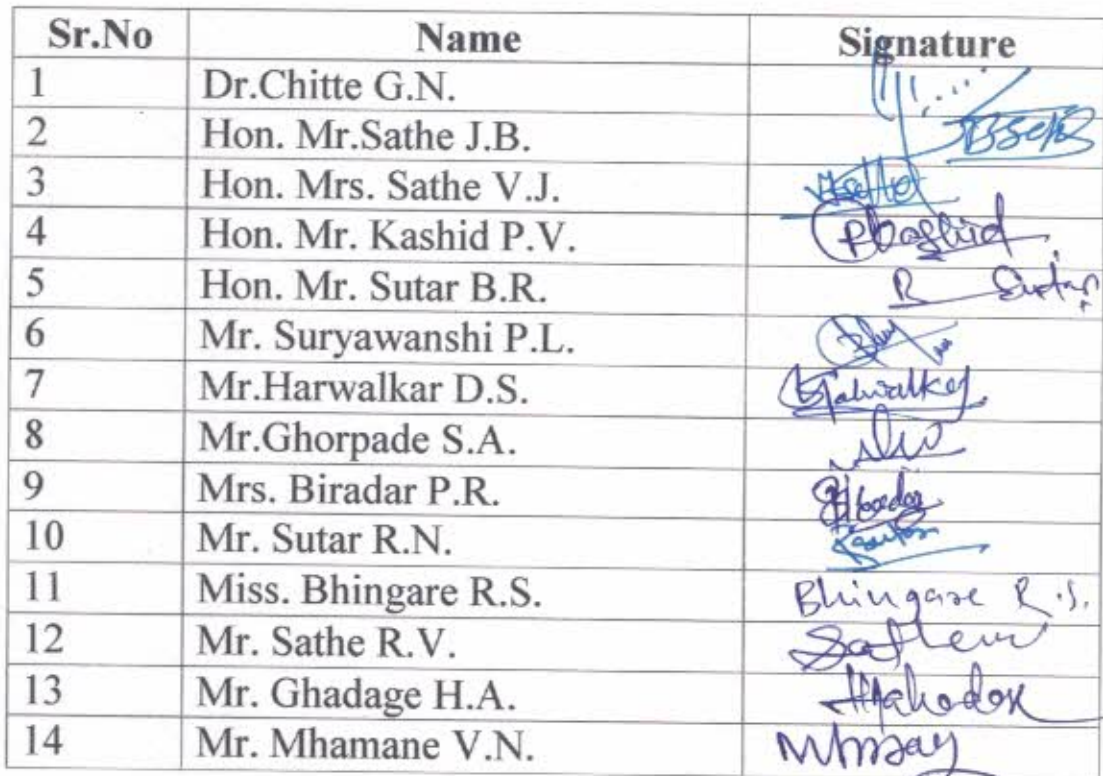 Sr.No Name Signature
1 Dr.Chitte G.N.
2 Hon. Mr.Sathe J.B.
3 Hon. Mrs. Sathe V.J.
4 Hon. Mr. Kashid P.V.
5 Hon. Mr. Sutar B.R.
6 Mr. Suryawanshi P.L.
7 Mr.Harwalkar D.S.
8 Mr.Ghorpade S.A.
9 Mrs. Biradar P.R.
10 Mr. Sutar R.N.
11 Miss. Bhingare R.S. Bhingare R.S.
12 Mr. Sathe R.V.
13 Mr. Ghadage H.A.
14 Mr. Mhamane V.N.